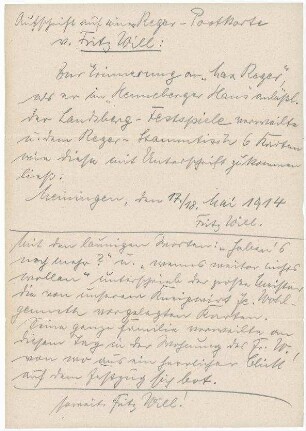 Aufschrift auf einer Reger-Postkarte
v. Fritz Will:
Zur Erinnerung an „Max Reger",
als er im „Henneberger Haus" anläßl.
der Landsberg-Festspiele verweilte
u. dem Reger-Stammtisch 6 Karten
wie diese mit Unterschrift zukommen
ließ.
Meiningen, den 17/18. Mai 1914
Fritz Will.
Mit den launigen Worten: „Haben S'
noch mehr?" u. „wenns weiter nichts
wollen" unterschrieb der große Meister
die von unserem Kneipwirt
vorgelegten Karten.
Seine ganze Familie verweilte an
diesem Tag in der Wohnung des Fr. W.
von wo aus ein herrlicher Blick
auf den Festzug sich bot.
soweit Fritz Will!